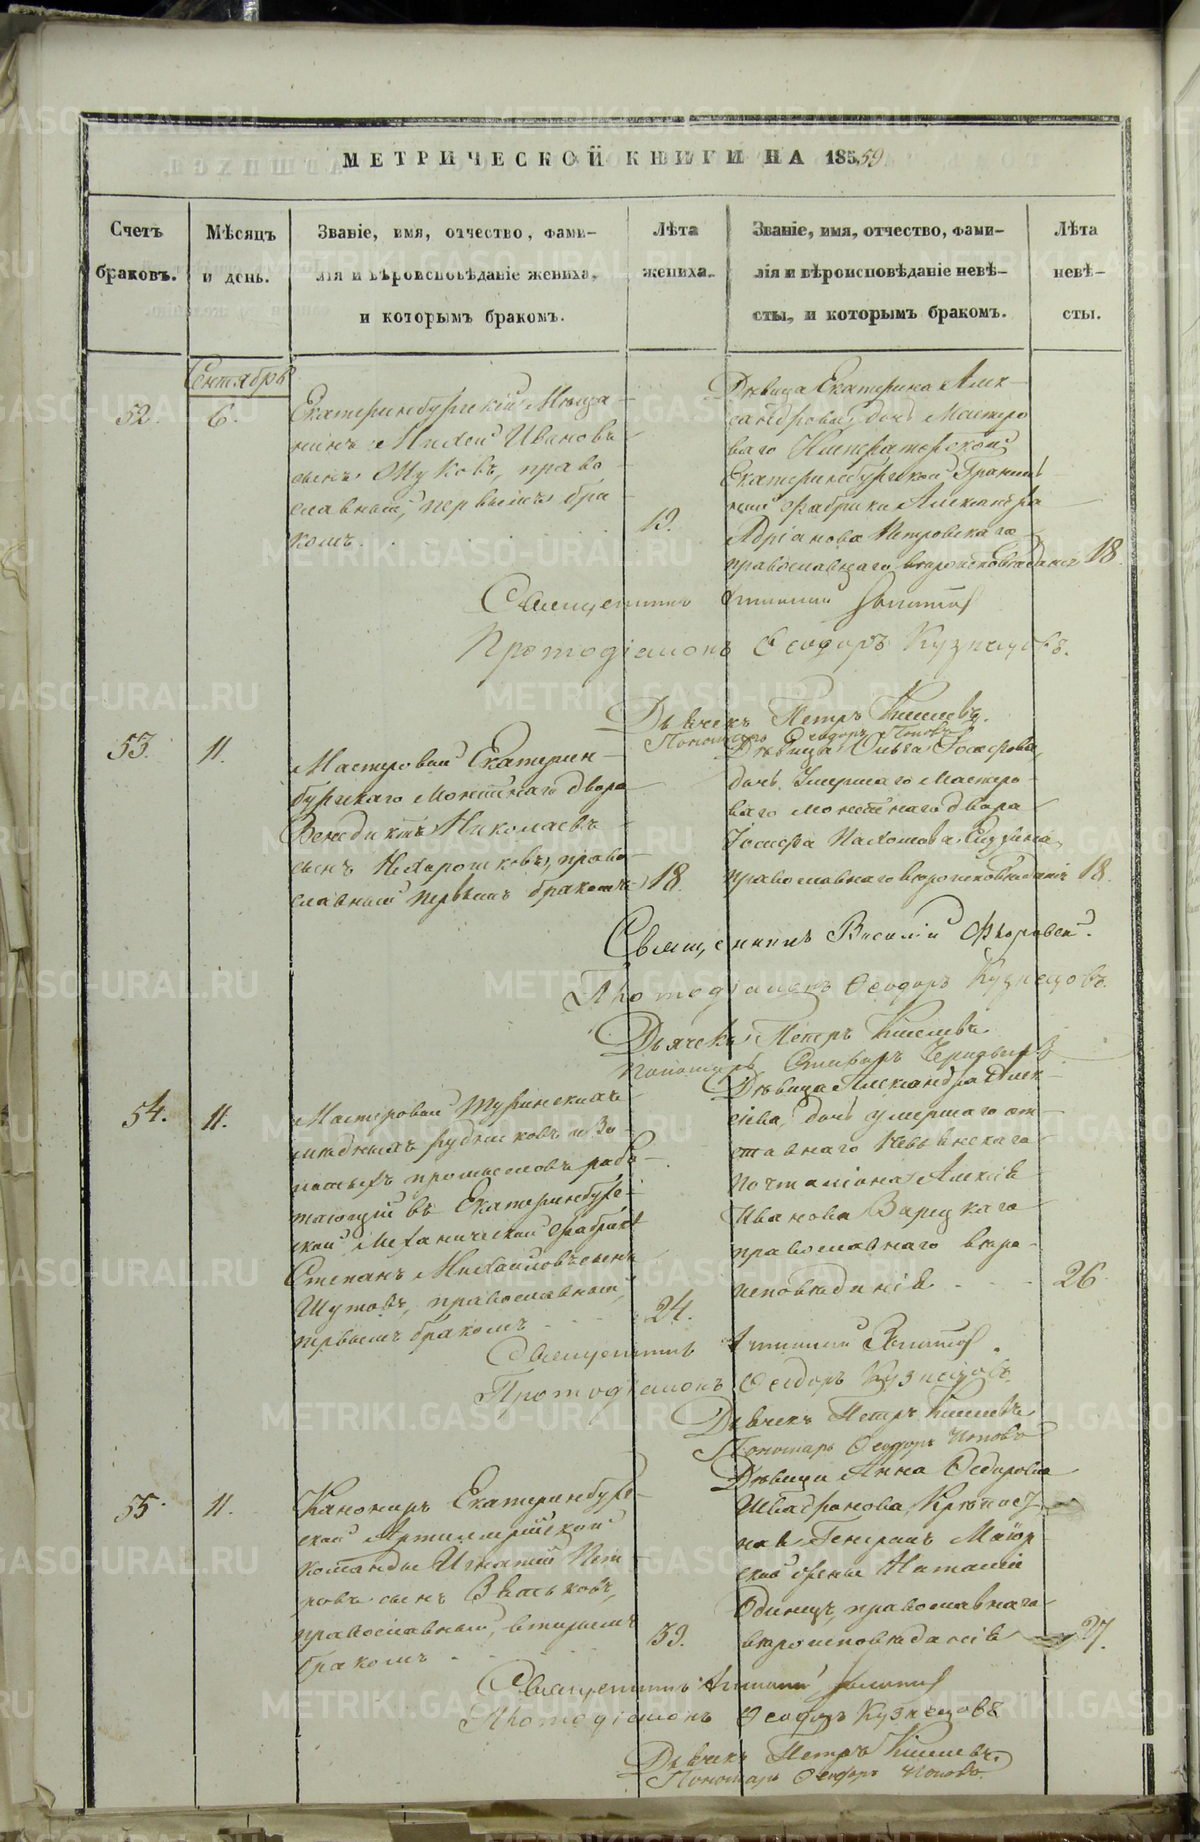 МЕТРИЧЕСКОЙ КНИГИ НА 1859
Счетъ браковъ.
Мѣсяцъ и день.
Званіе, имя, отчество, фами-
лія и вѣроисповѣданіе жениха,
и которымъ бракомъ.
Лѣта жениха.
Званіе, имя, отчество, фами-
лія и вѣроисповѣданіе невѣ-
сты, и которымъ бракомъ.
Лѣта невѣ-
сты.
Сентябрь
52.
6.
Екатеринбургскій Мѣща-
нинъ Михей Ивановъ
сынъ Жуковъ, право-
славный, первымъ бра-
комъ.
19.
Дѣвица Екатерина Алек-
сандрова, дочь Мастеро
ваго Императорской
Екатеринбургской Граниль
ной Фабрики Александра
Адріанова Петровскаго
православнаго вѣроисповѣданія
18.
Священникъ
Протодіаконъ Ѳеодоръ Кузнецовъ.
Дьячекъ Петръ Киселевъ.
Пономарь Ѳеодоръ Поповъ
53.
11.
Мастеровой Екатерин-
бургскаго Монетнаго двора
Венедиктъ Николаевъ
сынъ Нехорошковъ, право-
славный первымъ бракомъ
18.
Дѣвица Ольга Іосифова,
дочь Умершаго Мастеро-
ваго монетнаго двора
Іосифа Пахомова
православнаго вѣроисповѣданія
18.
Священникъ Василій Флоровскій.
Протодіаконъ Ѳеодоръ Кузнецовъ.
Дьячекъ Петръ Киселевъ
Пономарь
54.
11.
Мастеровой Туринскихъ
мѣдныхъ рудниковъ и Зо-
лотыхъ промысловъ рабо-
тающій въ Екатеринбург-
ской Механической фабрикѣ
Степанъ Михайловъ сынъ
Шутовъ, православный,
первымъ бракомъ
24.
Дѣвица Александра Алек-
сіева, дочь умершаго от-
ставнаго Невьянскаго
Почталіона Алексія
Иванова Варецкаго
православнаго вѣро-
исповѣданія
26
Священникъ
Протодіаконъ Ѳеодоръ Кузнецовъ.
Дьячекъ Петръ Киселевъ
Пономарь Ѳеодоръ Поповъ
55.
11.
Канониръ Екатеринбург-
ской Артиллерійской
команды Игнатій Пет
ровъ сынъ
православный, вторымъ
бракомъ
39.
Дѣвица Анна Ѳедорова
Швабронова,
ная Генералъ Маіор
Наталіи
Одинцъ, православнаго
вѣроисповѣданія
27.
Священникъ
Протодіаконъ Ѳеодоръ Кузнецовъ
Дьячекъ Петръ Киселевъ.
Пономарь Ѳеодоръ Поповъ.
METRIKI.GASO-URAL.RU